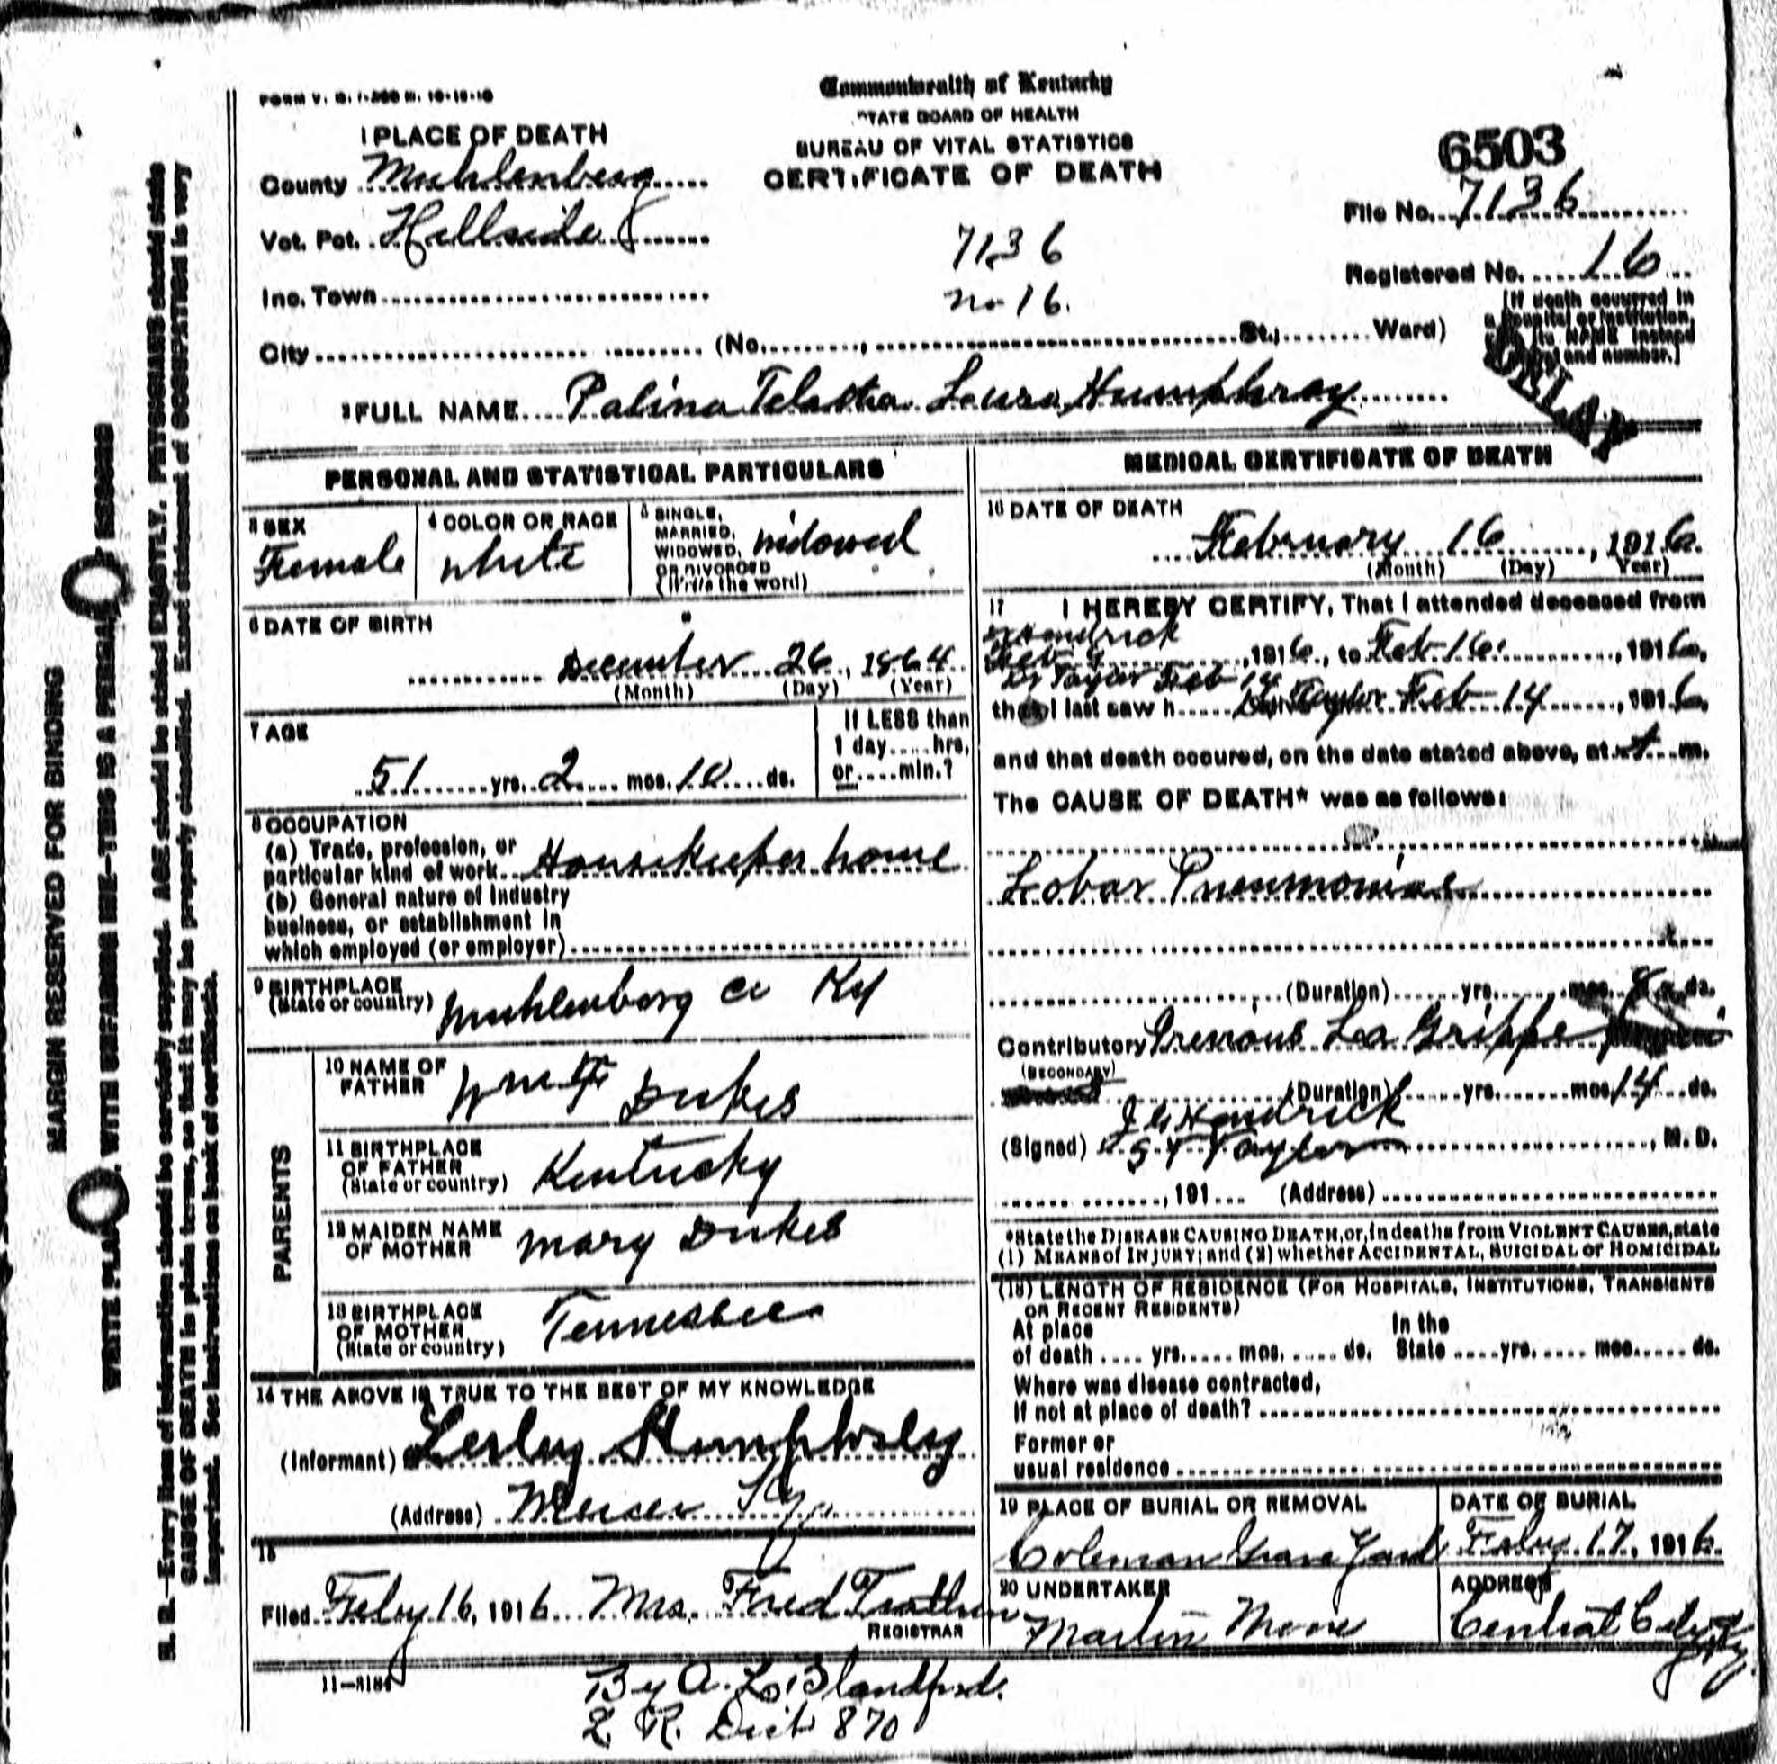 FORM V. S. 1-
Commonwealth of Kentucky
STATE BOARD OF HEALTH
BUREAU OF VITAL STATISTICS
CERTIFICATE OF DEATH
6503
1 PLACE OF DEATH
County Muhlenberg
Vot. Pct. Hillside
Inc. Town
City (No. , St.; Ward)
7136
no 16.
File No. 7136
Registered No. 16
(If death occurred in a hospital or institution, its NAME instead and number.)
2 FULL NAME Palina Laura Humphray
PERSONAL AND STATISTICAL PARTICULARS
3 SEX
Female
4 COLOR OR RACE
white
5 SINGLE, MARRIED, WIDOWED, OR DIVORCED (Write the word)
widowed
6 DATE OF BIRTH
December 26, 1864
(Month) (Day) (Year)
7 AGE
51 yrs. 2 mos. 10 ds.
If LESS than 1 day .... hrs. or .... min.?
8 OCCUPATION
(a) Trade, profession, or
particular kind of work Housekeeper home
(b) General nature of Industry
business, or establishment in
which employed (or employer)
9 BIRTHPLACE
(State or country) Muhlenberg Co Ky
PARENTS
10 NAME OF FATHER Dukes
11 BIRTHPLACE OF FATHER
(State or country) Kentucky
12 MAIDEN NAME OF MOTHER Mary Dukes
13 BIRTHPLACE OF MOTHER
(State or country) Tennessee
14 THE ABOVE IS TRUE TO THE BEST OF MY KNOWLEDGE
(Informant) Lesley Humphrey
(Address) Mercer Ky.
15
Filed Feby 16, 1916 Mrs. Fred
REGISTRAR
By A. L. Blandford.
L. R. Dist 870
MEDICAL CERTIFICATE OF DEATH
16 DATE OF DEATH
February 16, 1916
(Month) (Day) (Year)
17 I HEREBY CERTIFY, That I attended deceased from
Kendrick
Feb 9, 1916, to Feb 16, 1916,
Dr Taylor Feb 14
that I last saw h Dr Taylor Feb 14, 1916,
and that death occured, on the date stated above, at m.
The CAUSE OF DEATH* was as follows:
Lobar Pneumonia
(Duration) yrs. mos. 8 ds.
Contributory Previous La Grippe
(SECONDARY)
(Duration) yrs. mos 14 ds.
J G Kendrick
(Signed) Taylor, M. D.
, 191 (Address)
*State the DISEASE CAUSING DEATH, or, in deaths from VIOLENT CAUSES, state
(1) MEANS of INJURY; and (2) whether ACCIDENTAL, SUICIDAL or HOMICIDAL
(18) LENGTH OF RESIDENCE (FOR HOSPITALS, INSTITUTIONS, TRANSIENTS
OR RECENT RESIDENTS)
At place of death .... yrs. .... mos. .... ds. In the State .... yrs. .... mos. .... ds.
Where was disease contracted,
If not at place of death?
Former or
usual residence
19 PLACE OF BURIAL OR REMOVAL
Coleman Grave Yard
DATE OF BURIAL
Feby 17, 1916
20 UNDERTAKER
Martin Moore
ADDRESS
Central City Ky
MARGIN RESERVED FOR BINDING
WRITE PLAINLY, WITH UNFADING INK—THIS IS A PERMANENT RECORD
N. B.—Every item of information should be carefully supplied. AGE should be stated EXACTLY. PHYSICIANS should state
CAUSE OF DEATH in plain terms, so that it may be properly classified. Exact statement of OCCUPATION is very
important. See instructions on back of certificate.